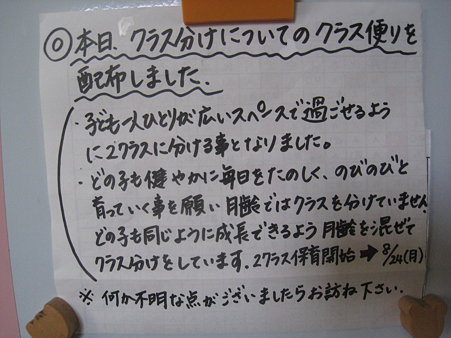 ◎本日、クラス分けについてのクラス便りを
配布しました。
・子ども一人ひとりが広いスペースで過ごせるよう
に2クラスに分ける事となりました。
・どの子も健やかに毎日をたのしく、のびのびと
育っていく事を願い月齢ではクラスを分けていません。
どの子も同じように成長できるよう月齢を混ぜて
クラス分けをしています。2クラス保育開始→8/24(月)
※ 何か不明な点がございましたらお訪ね下さい。